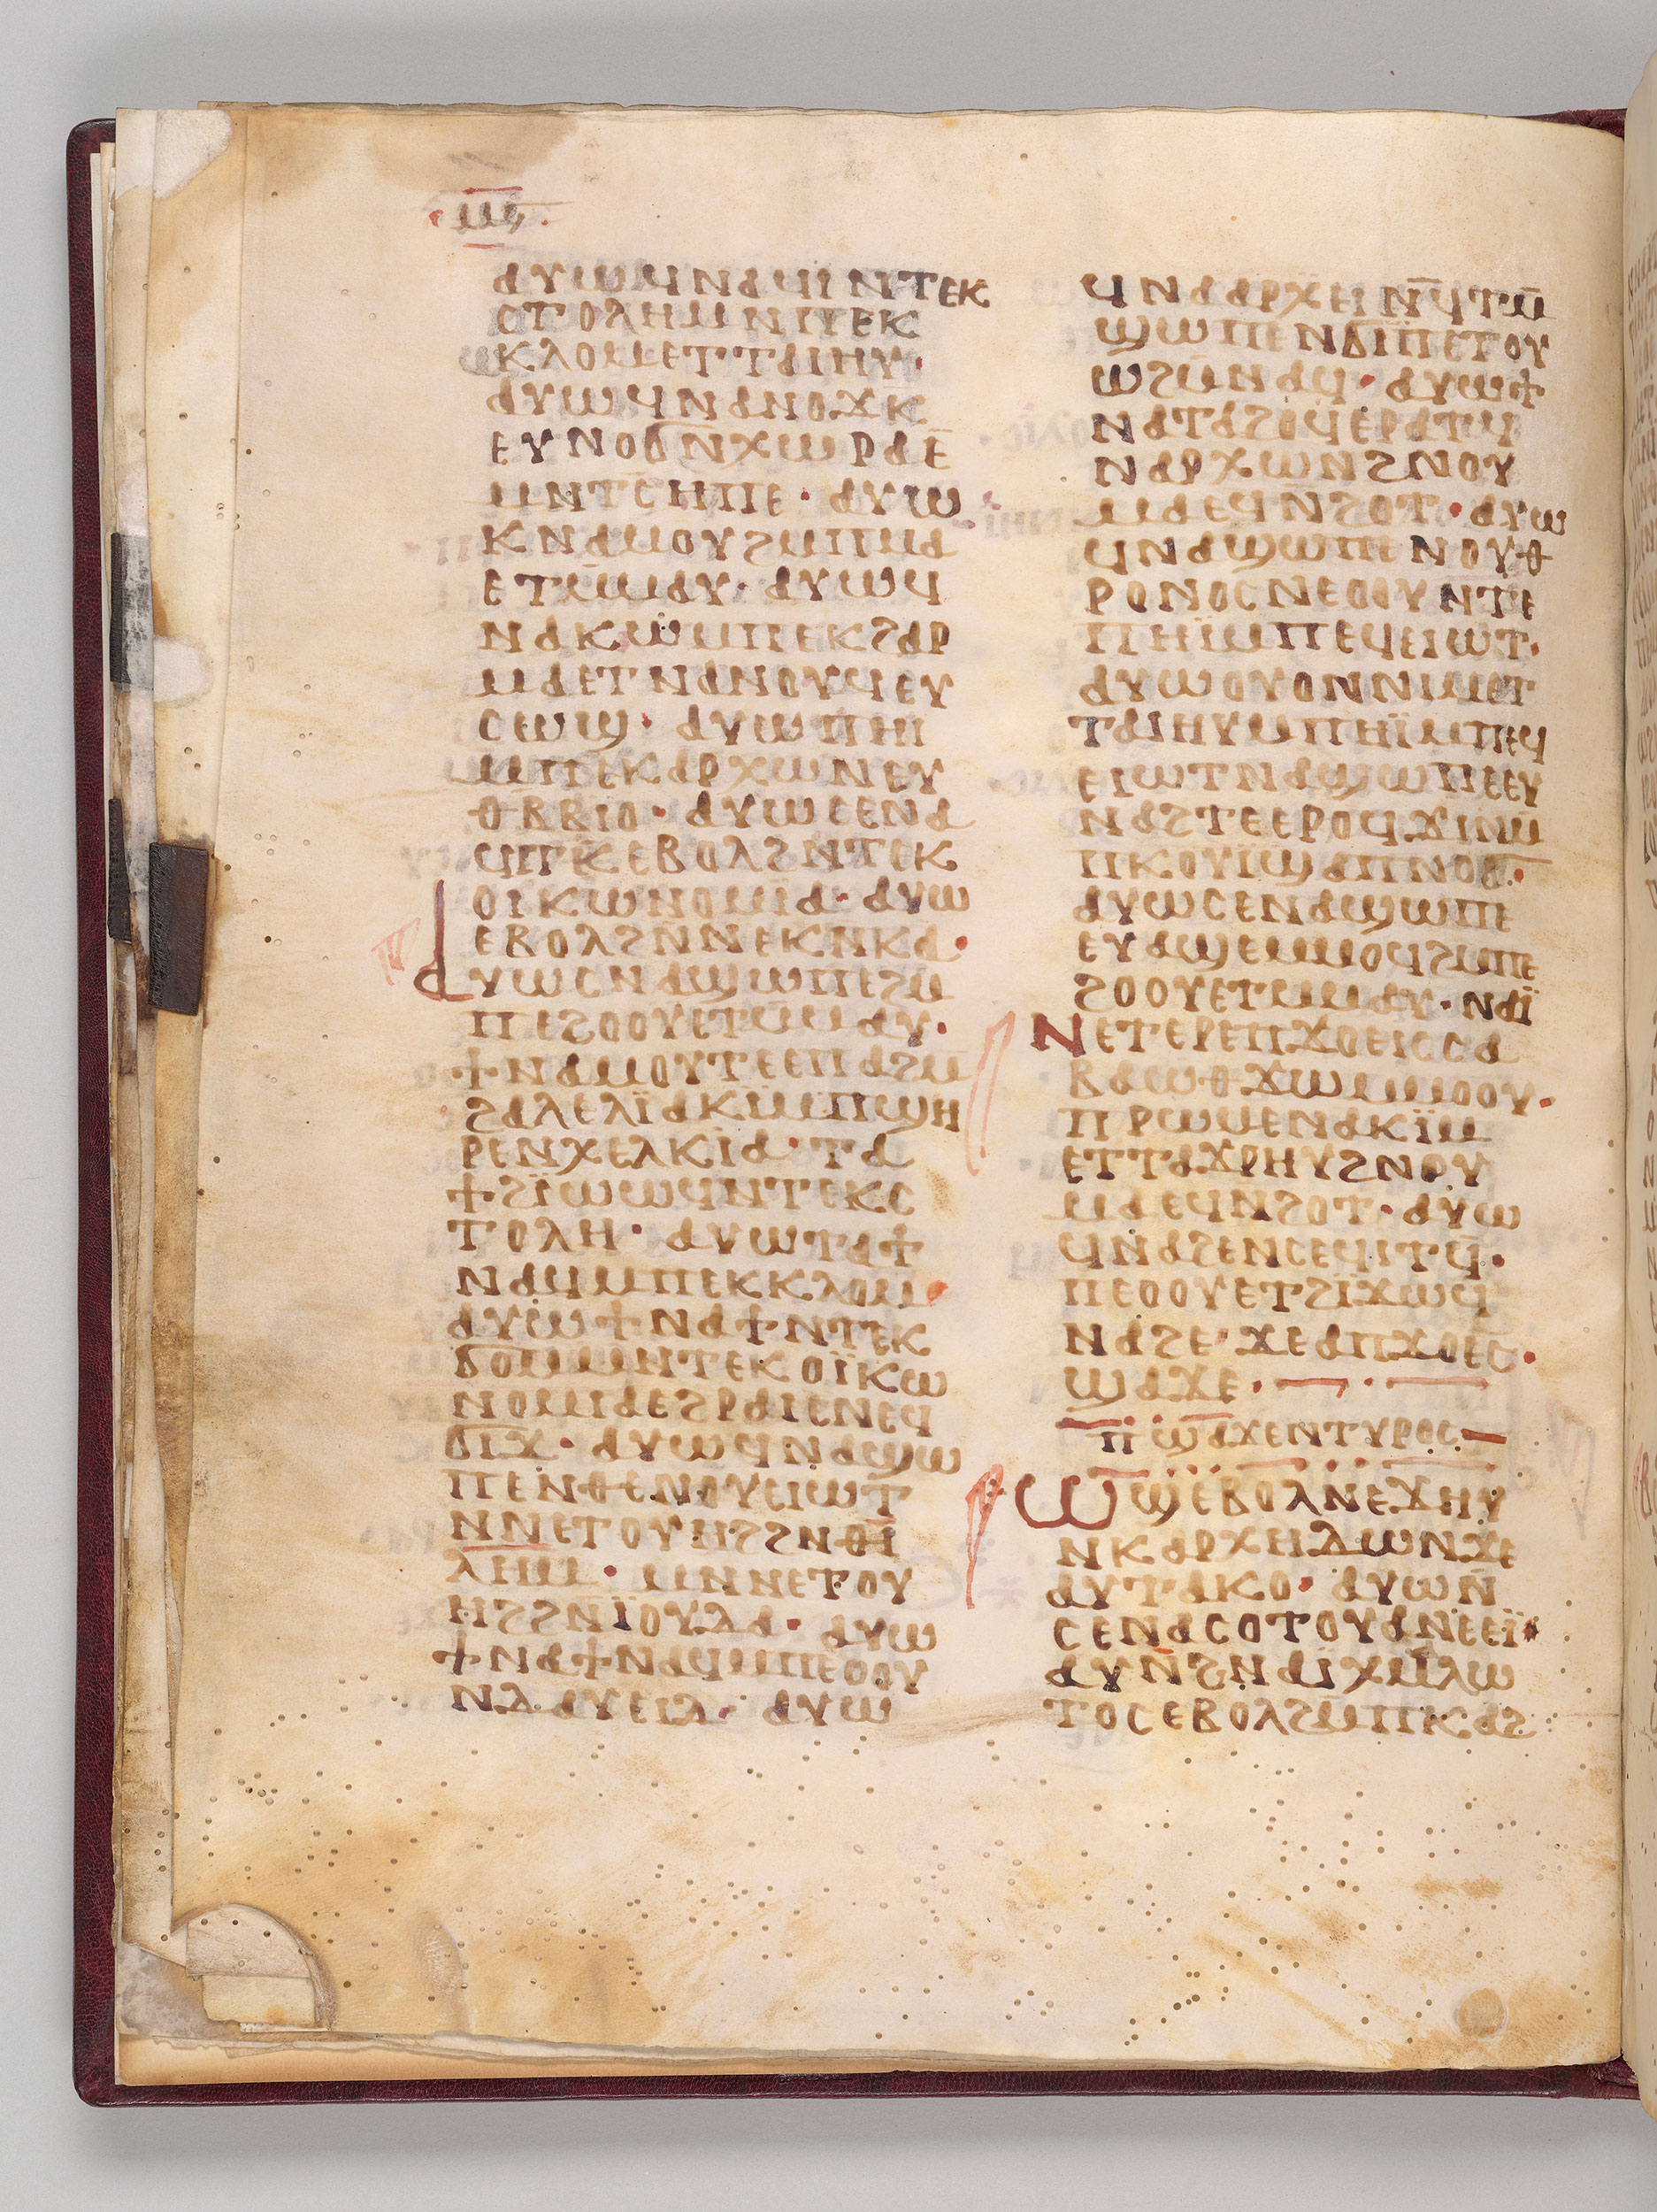 ⲙⲋ
ⲁⲩⲱϥⲛⲁϥⲓⲛⲧⲉⲕ
ⲥⲧⲟⲗⲏⲙⲛⲡⲉⲕ
ⲕⲗⲟⲙⲉⲧⲧⲁⲓⲏⲩ·
ⲁⲩⲱϥⲛⲁⲛⲟϫⲕ̄
ⲉⲩⲛⲟϭⲛ̄ⲭⲱⲣⲁⲉ̄
ⲙⲛⲧⲥ̄ⲏⲡⲉ· ⲁⲩⲱ
ⲕⲛⲁⲙⲟⲩϩⲙⲡⲙⲁ
ⲉⲧⲙ̄ⲙⲁⲩ· ⲁⲩⲱϥ
ⲛⲁⲕⲱⲙⲡⲉⲕϩⲁⲣ
ⲙⲁⲉⲧⲛⲁⲛⲟⲩϥⲉⲩ
ⲥⲉⲱϣ· ⲁⲩⲱⲡⲏⲓ
ⲙⲡⲉⲕⲁⲣⲭⲱⲛⲉⲩ
ⲑⲃⲃⲓⲟ· ⲁⲩⲱⲥⲉⲛⲁ
ϥⲓⲧⲕ̄ⲉⲃⲟⲗϩⲛⲧⲉⲕ
ⲟⲓⲕⲱⲛⲟⲙⲓⲁ· ⲁⲩⲱ
ⲉⲃⲟⲗϩⲛ̄ⲛⲉⲕⲛⲕⲁ·
ⲁⲩⲱⲥⲛⲁϣⲱⲡⲉϩⲙ
ⲡⲉϩⲟⲟⲩⲉⲧⲙ̄ⲙⲁⲩ·
ϯⲛⲁⲙⲟⲩⲧⲉⲉⲡⲁϩⲙ̄
ϩⲁⲗⲉⲗⲓ̈ⲁⲕⲓⲙⲡϣⲏ
ⲣⲉⲛⲭⲉⲗⲕⲓⲁ· ⲧⲁ
ϯϩⲓ̈ⲱⲱϥⲛⲧⲉⲕⲥ
ⲧⲟⲗⲏ· ⲁⲩⲱⲧⲁϯ
ⲛⲁϥⲙⲡⲉⲕⲕⲗⲟⲙ
ⲁⲩⲱϯⲛⲁϯⲛⲧⲉⲕ
ϭⲟⲙⲙⲛⲧⲉⲕⲟⲓ̈ⲕⲱ
ⲛⲟⲙⲓⲁⲉϩⲣⲁⲓⲉⲛⲉϥ
ϭⲓϫ· ⲁⲩⲱϥⲛⲁϣⲱ
ⲡⲉⲛⲑⲉⲛⲟⲩⲉⲓⲱⲧ
ⲛⲛⲉⲧⲟⲩⲏϩϩⲛⲑⲓ
ⲗⲏⲙ· ⲙⲛⲛⲉⲧⲟⲩ
ⲏϩϩⲛⲓ̈ⲟⲩⲇⲁ· ⲁⲩⲱ
ϯⲛⲁϯⲛⲁϥⲙⲡⲉⲟⲟⲩ
ⲛⲇⲁⲩⲉⲓⲇ· ⲁⲩⲱ
ϥⲛⲁⲁⲣⲭⲉⲓⲛ̄ϥⲧⲙ̄
ϣⲱⲡⲉⲛϭⲓⲡⲉⲧⲟⲩ
ⲱϩⲙ̄ⲛⲁϥ· ⲁⲩⲱϯ
ⲛⲁⲧⲁϩⲟϥⲉⲣⲁⲧϥ
ⲛⲁⲣⲭⲱⲛϩⲛⲟⲩ
ⲙⲁⲉϥⲛ̄ϩⲟⲧ· ⲁⲩⲱ
ϥⲛⲁϣⲱⲡⲉⲛⲟⲩⲑ
ⲣⲟⲛⲟⲥⲛⲉⲟⲟⲩⲛⲧⲉ
ⲡⲏⲓ̈ⲙⲡⲉϥⲉⲓⲱⲧ·
ⲁⲩⲱⲟⲩⲟⲛⲛⲓⲙⲉⲧ
ⲧⲁⲓⲏⲩⲙⲡⲏⲓ̈ⲙⲡⲉϥ
ⲉⲓⲱⲧⲛⲁϣⲱⲡⲉⲉⲩ
ⲛⲁϩⲧⲉⲉⲣⲟϥϫⲓⲛⲙ̄
ⲡⲕⲟⲩⲓ̈ϣⲁⲡⲛⲟϭ·
ⲁⲩⲱⲥⲉⲛⲁϣⲱⲡⲉ
ⲉⲩⲁϣⲉⲙⲙⲟϥϩⲙⲡⲉ
ϩⲟⲟⲩⲉⲧⲙⲙⲁⲩ· ⲛⲁⲓ̈
ⲛⲉⲧⲉⲣⲉⲡϫⲟⲉⲓⲥⲥⲁ
ⲃⲁⲱⲑϫⲱⲙⲙⲟⲟⲩ·
ⲡⲣⲱⲙⲉⲛⲁⲕⲓ̈ⲙ
ⲉⲧⲧⲁϫⲣⲏⲩϩⲛⲟⲩ
ⲙⲁⲉϥⲛϩⲟⲧ· ⲁⲩⲱ
ϥⲛⲁϩⲉⲛⲥⲉϥⲓⲧϥ̄·
ⲡⲉⲟⲟⲩⲉⲧϩⲓϫⲱϥ
ⲛⲁϩⲉ· ϫⲉⲁⲡϫⲟⲉⲥ·
ϣⲁϫⲉ·
ⲡϣⲁϫⲉⲛⲧⲩⲣⲟⲥ
ⲱϣⲉⲃⲟⲗⲛⲉϫⲏⲩ
ⲛⲕⲁⲣⲭⲏⲇⲱⲛϫⲉ
ⲁⲩⲧⲁⲕⲟ· ⲁⲩⲱⲛ̄
ⲥⲉⲛⲁⲥⲟⲧⲟⲩⲁⲛⲉⲉⲓ̈
ⲁⲩⲛ̄ϩⲛⲁⲓⲭⲙⲁⲗⲱ
ⲧⲟⲥⲉⲃⲟⲗϩⲙ̄ⲡⲕⲁϩ